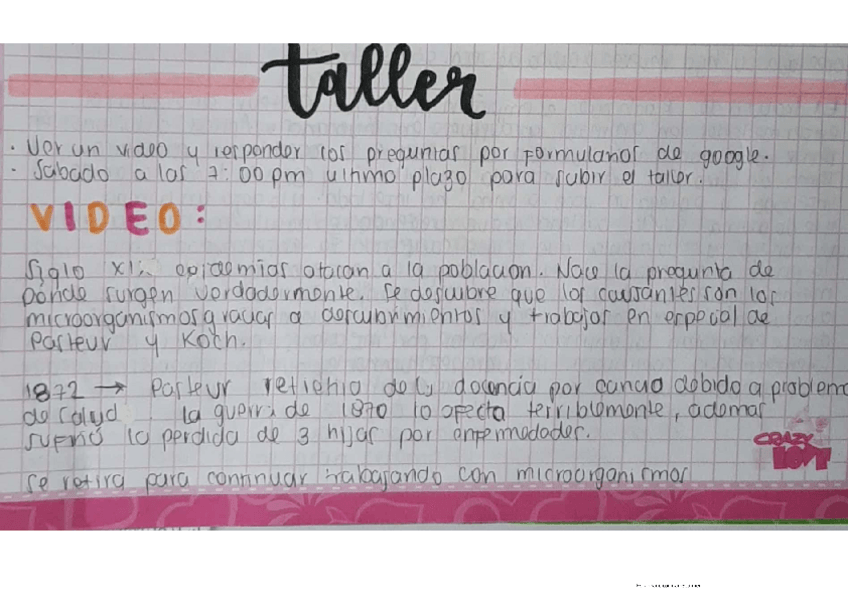 taller
· Ver un video y responder las preguntas por formularios de google.
· Sabado a las 7:00 pm ultimo plazo para subir el taller.
VIDEO:
Siglo XI: epidemias atacan a la poblacion. Nace la pregunta de
donde surgen verdadermente. Se descubre que los causantes son los
microorganismos gracias a descubrimientos y trabajos en especial de
Pasteur y Koch.
1872 → Pasteur docencia por debido a problem
de salud la guerra de 1870 lo afecta terriblemente, ademas
sufrió la perdida de 3 hijas por enfermedades.
Se retira para continuar trabajando con microorganismos
CRAZY
LOVE